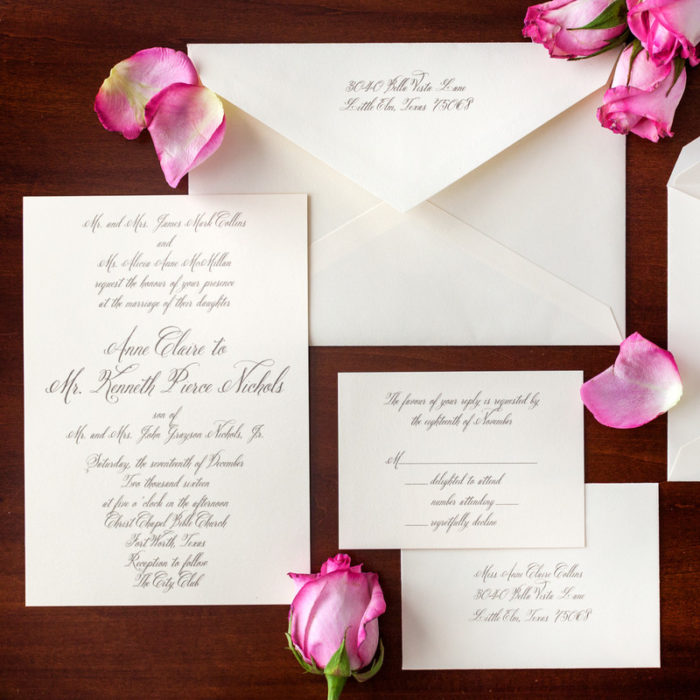 3040 Bella Vista Lane
Little Elm, Texas 75068
Mr. and Mrs. James Mark Collins
and
Ms. Alicia Anne McMillan
request the honour of your presence
at the marriage of their daughter
Anne Claire to
Mr. Kenneth Pierce Nichols
son of
Mr. and Mrs. John Grayson Nichols, Jr.
Saturday, the seventeenth of December
Two thousand sixteen
at five o'clock in the afternoon
Christ Chapel Bible Church
Fort Worth, Texas
Reception to follow
The City Club
The favour of your reply is requested by
the eighteenth of November
M
delighted to attend
number attending
regretfully decline
Miss Anne Claire Collins
3040 Bella Vista Lane
Little Elm, Texas 75068